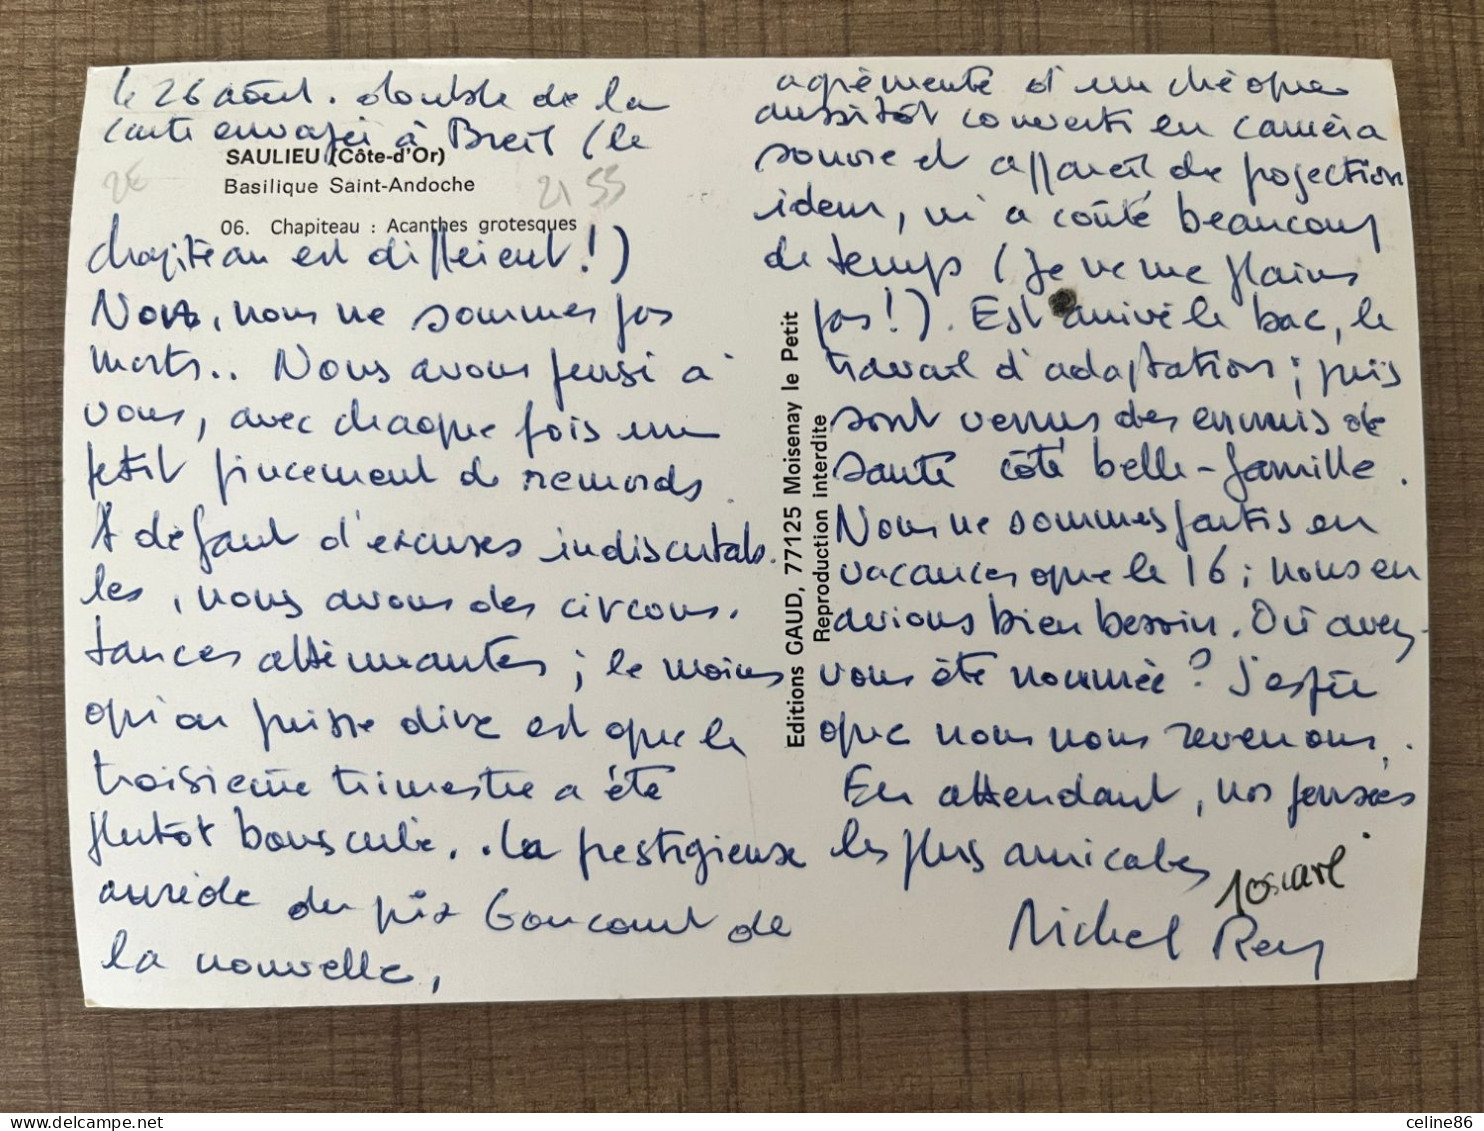 le 26 août. double de la
carte envoyée à Breil (le
SAULIEU (Côte-d'Or)
Basilique Saint-Andoche
2€
21 55
06. Chapiteau : Acanthes grotesques
chapiteau est différent!)
Non, nous ne sommes pas
morts.. Nous avons pensé à
vous, avec chaque fois un
petit pincement de remords.
A défaut d'excuses indiscutab-
les, nous avons des circons-
tances atténuantes; le moins
qu'on puisse dire est que le
troisième trimestre a été
plutôt bousculé. La prestigieuse
auréole du prix Goncourt de
la nouvelle,
Editions GAUD, 77125 Moisenay le Petit
Reproduction interdite
agrémenté d'un chèque
aussitôt converti en caméra
sonore et appareil de projection
idem, m'a coûté beaucoup
de temps (je ne me plains
pas!). Est arrivé le bac, le
travail d'adaptation; puis
sont venus des ennuis de
santé côté belle-famille.
Nous ne sommes partis en
vacances que le 16; nous en
avions bien besoin. Où avez-
vous été nommée? J'espère
que nous nous reverrons.
En attendant, nos pensées
les plus amicales
Michel Rey
celine86